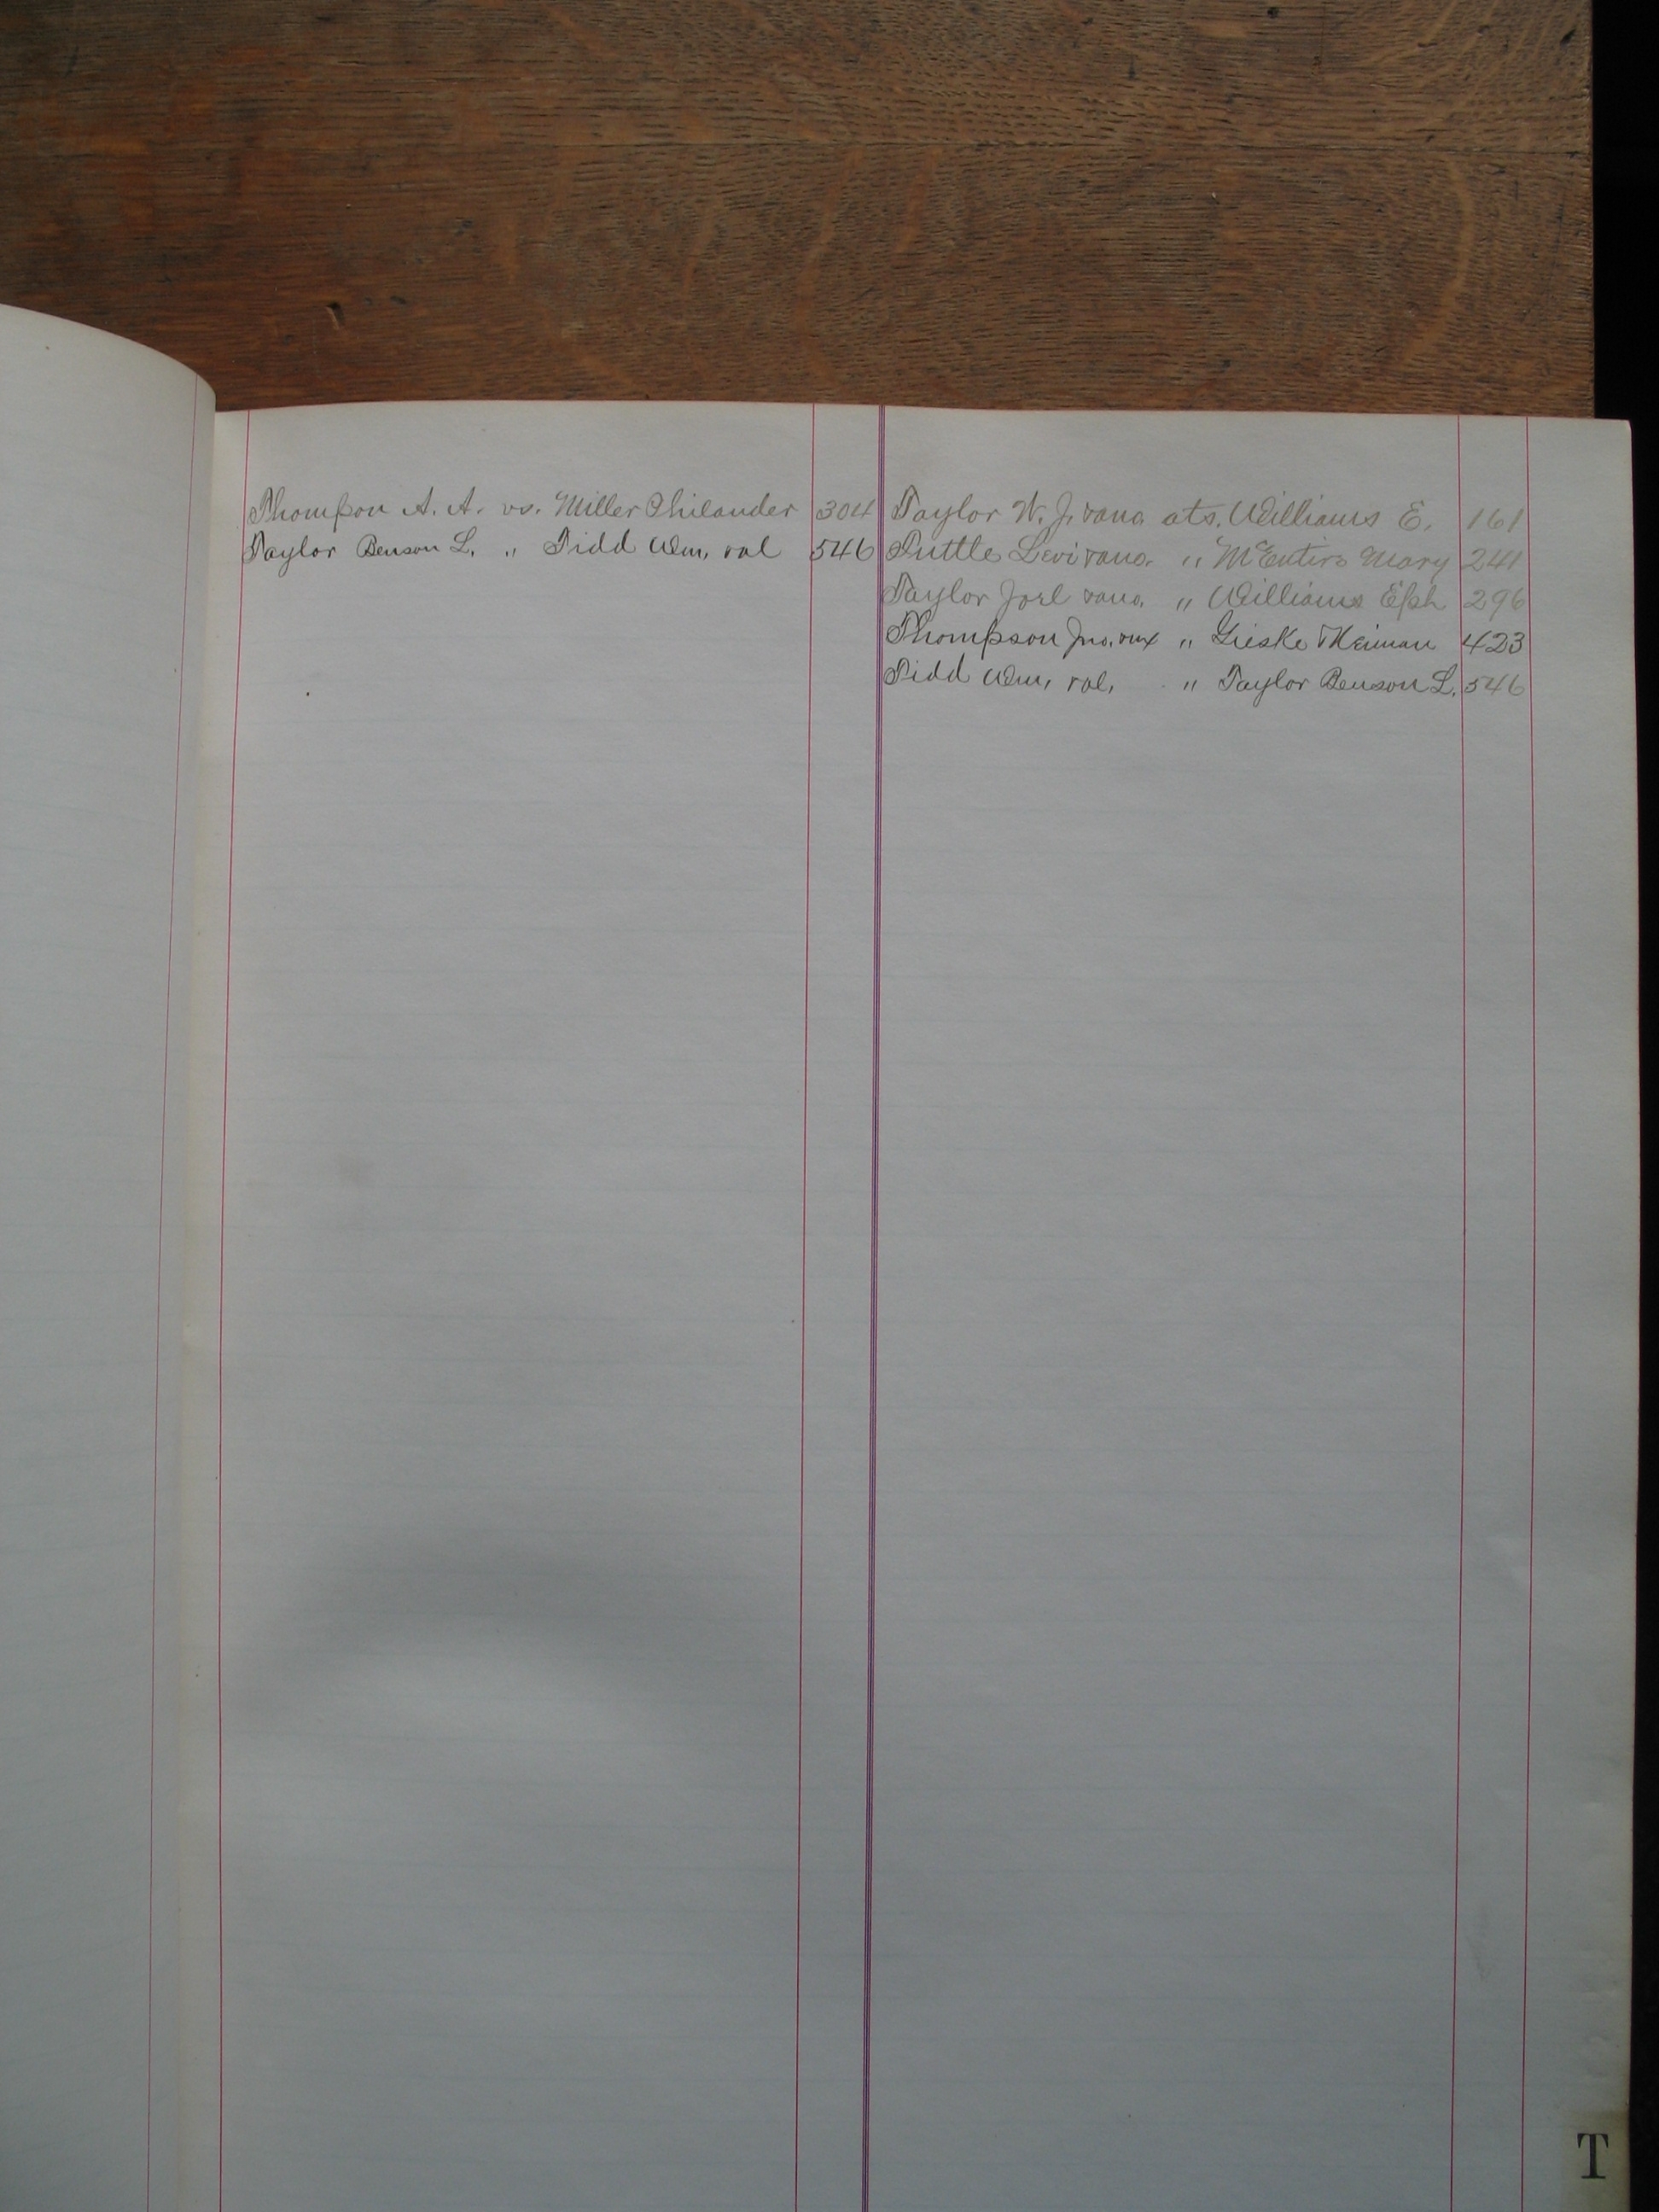 Thompson A. A. vs. Miller Philander 304
Taylor Benson L. " Tidd Wm, val 546
Taylor W. J. vana ats. Williams E. 161
Tuttle Levi vana. " McEntire Mary 241
Taylor Joel vana. " Williams Eph 296
Thompson Jno. vux " Gieske Heiman 423
Tidd Wm, val, " Taylor Benson L. 546
T